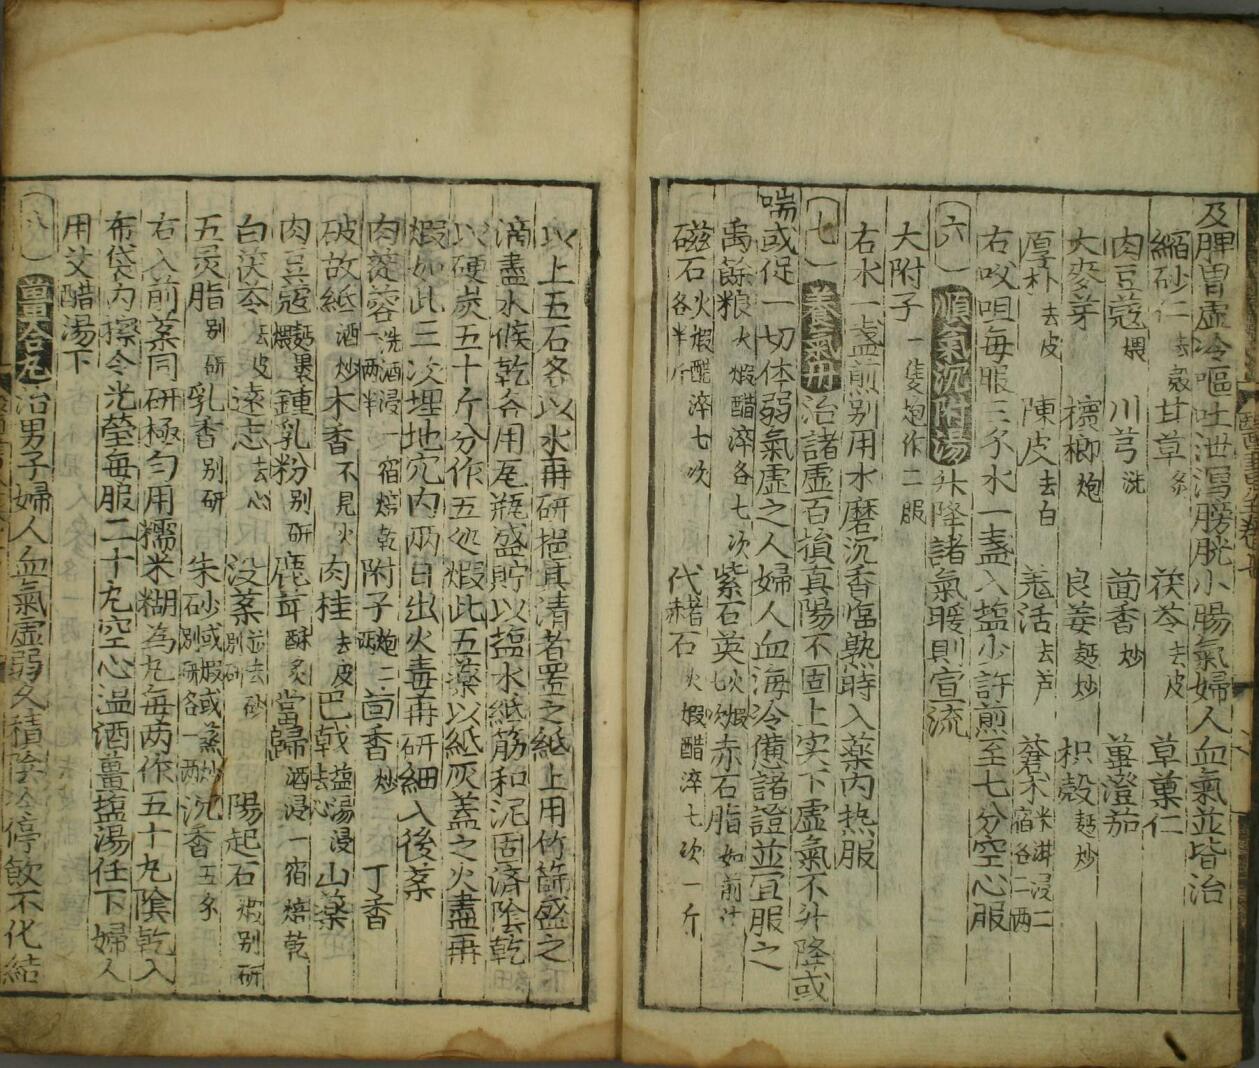 及脾胃虚冷嘔吐泄瀉膀胱小腸氣婦人血氣並皆治
縮砂仁去殼 甘草炙 茯苓去皮 草菓仁
肉豆蔻煨 川芎洗 茴香炒 蓽澄茄
大麥芽 檳榔炮 良姜麸炒 枳殼麸炒
厚朴去皮 陳皮去白 羌活去芦 蒼朮米泔浸二宿各二两
右㕮咀每服三钱水一盏入塩少許煎至七分空心服
(六)順氣沉附湯 升降諸氣暖則宣流
大附子一隻炮作二服
右水一盏煎别用水磨沉香臨熟時入薬内热服
(七)養氣丹 治諸虚百損真陽不固上实下虚氣不升降或
喘或促一切体弱氣虚之人婦人血海冷備諸證並宜服之
禹餘粮火煆醋淬各七次 紫石英火煆七次 赤石脂如前法
磁石火煆醋淬七次各半斤 代赭石火煆醋淬七次一斤
以上五石各以水再研挹其清者置之紙上用竹篩盛之
滴盡水候乾各用瓦瓶盛貯以塩水紙筋和泥固済陰乾
以硬炭五十斤分作五処煆此五薬以紙灰蓋之火盡再
煆如此三次埋地穴内兩日出火毒再研細入後薬
肉蓯蓉洗酒浸一宿焙乾一两半 附子炮二两 茴香炒 丁香
破故紙酒炒 木香不見火 肉桂去皮 巴戟塩湯浸去心 山薬
肉豆蔻麸裹煨 鍾乳粉别研 鹿茸酥炙 當歸酒浸一宿焙乾
白茯苓去皮 遠志去心 没薬並去砂别研 陽起石煆别研
五灵脂别研 乳香别研 朱砂或煆或蒸炒别研各一两 沉香五钱
右入前薬同研極勻用糯米糊為丸每两作五十丸陰乾入
布袋内擦令光瑩每服二十丸空心温酒薑塩湯任下婦人
用艾醋湯下
(八)薑合丸 治男子婦人血氣虚弱久積陰冷停飲不化結